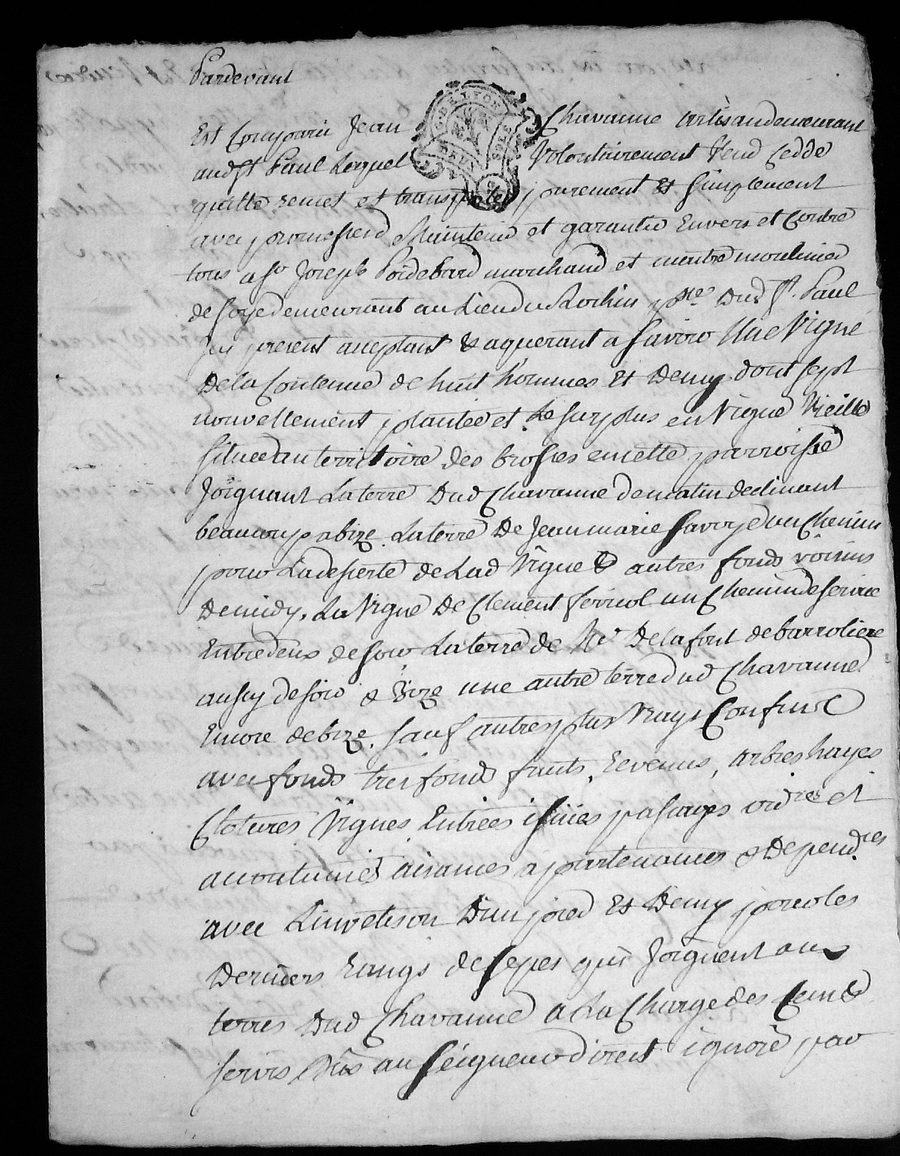 Pardevant
Est Comparu Jean Chavanne artisan demeurant
aud St. Paul volontairement Vend Cedde
quitte remet et transporte purement & Simplement
avec promesse de Maintenir et garantir Envers et Contre
tous a Sr Joseph marchand et maitre moulinier
de soye demeurant au Lieu du Rochin psse Dud St. Paul
icy present aceptant & aquerant a Savoir Une Vigne
De la Contenue de huit hommes Et Demy, dont sept
nouvellement plantée et Le surplus en Vigne Vieille
situee au territoire des brosses en cette parroisse
Joignant La terre Dud Chavanne de matin declinant
beaucoup a bize La terre De Jean marie Savoye un Chemin
pour La deserte de Lad Vigne & autres fonds voisins
De midy, La Vigne De Clement ferriol un Chemin de service
Entredeux de soir La terre de Mr. De la font de barroliere
aussy de soir & bize une autre terre dud Chavanne
Encore de bize, sauf autres plus Vrays Confins
avec fonds tres fonds fruits, revenus, arbres hayes
Clotures Vignes Entrées issües passages ordres et
acoutumés aisances apartenances & Dependces
avec L'investison D'un pied Et Demy pour les
Derniers rangs de sepes qui Joignent aux
terres Dud Chavanne a La Charge des Cens &
servis Dûs au Seigneur direct ignoré par
DE LYON
DEUX SOLS